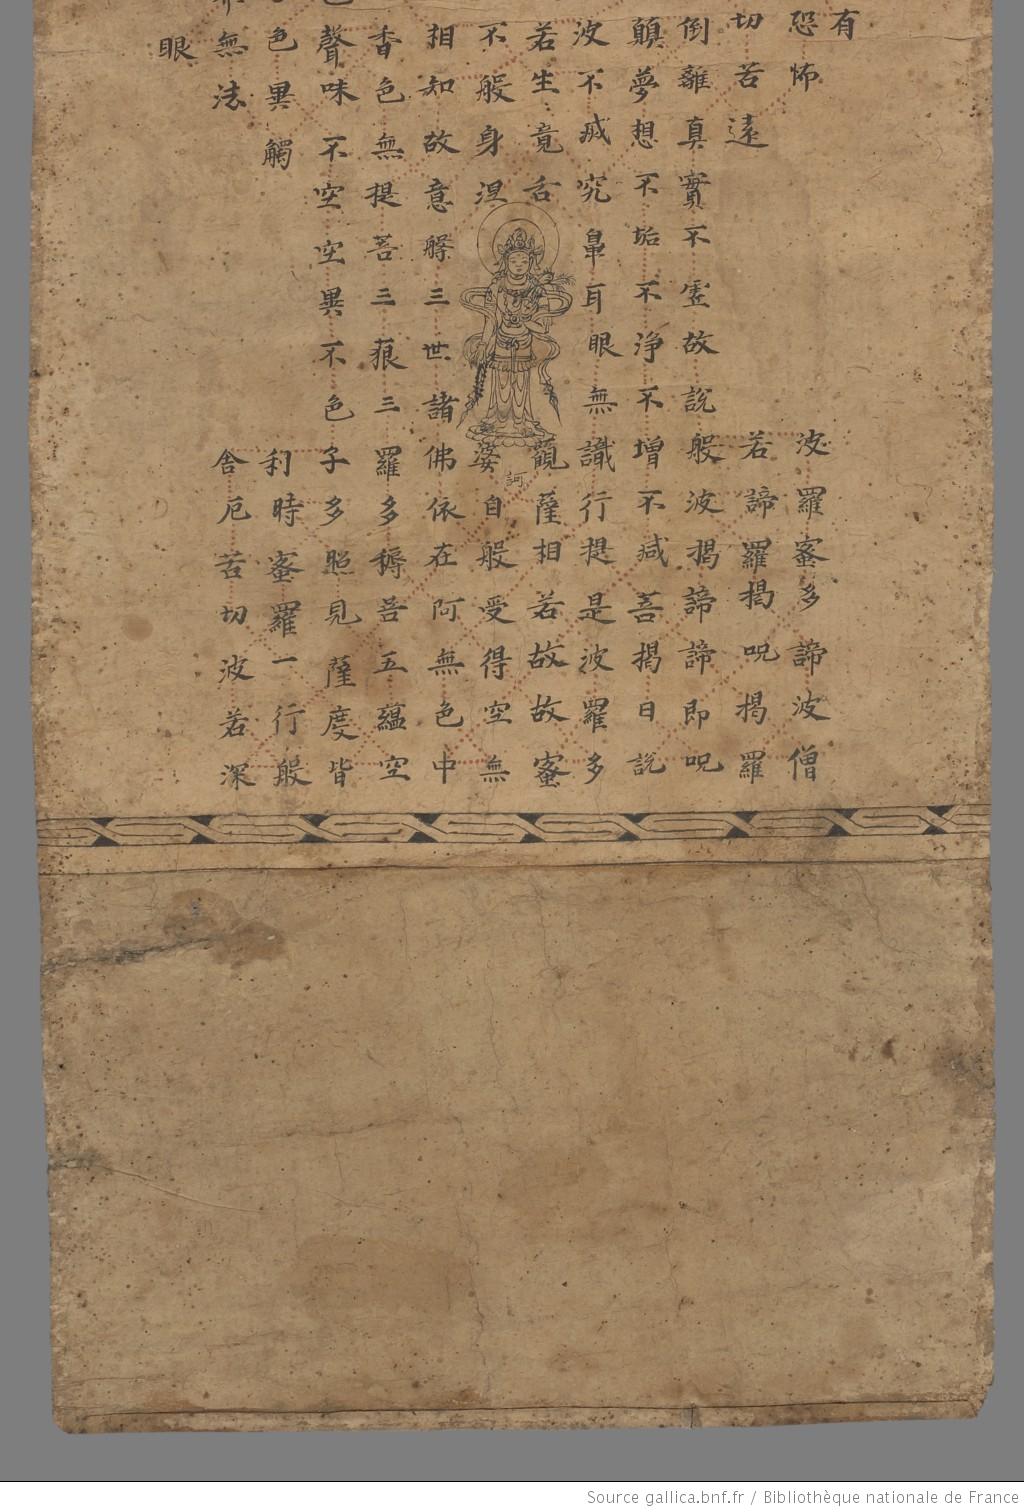 有
恐怖
波羅蜜多諦波僧
切苦遠
若諦羅揭呪揭羅
倒離真實不虛故說般波揭諦諦即呪
顛夢想不垢不淨不增不減菩揭日說
波不滅究鼻耳眼無識行提是波羅多
若生竟舌
觀薩相若故故蜜
訶
不般身涅
婆自般受得空無
相知故意解三世諸佛依在阿無色中
香色無提菩三藐三羅多耨菩五蘊空
聲味不空空異不色子多照見薩度皆
色異觸
利時蜜羅一行般
無法
舍厄苦切波若深
眼
Source gallica.bnf.fr / Bibliothèque nationale de France